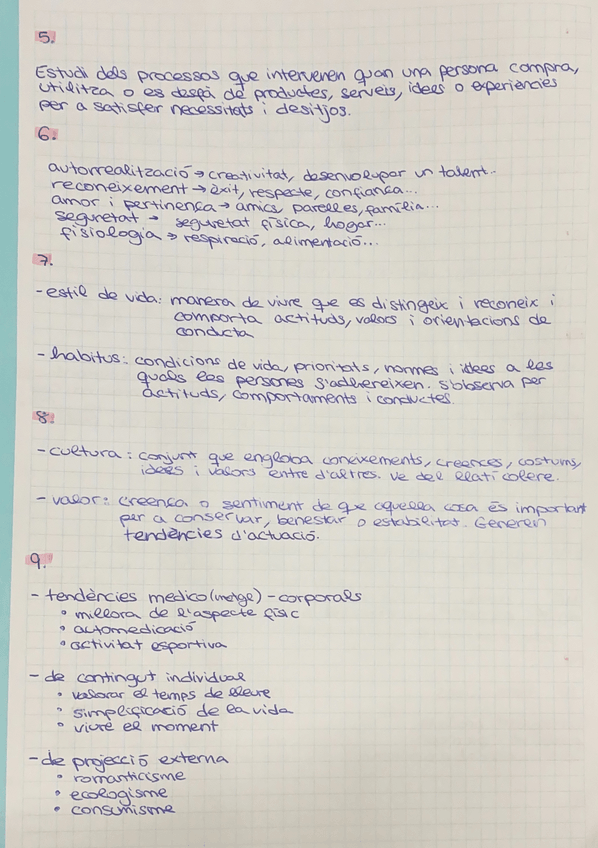 5.
Estudi dels processos que intervenen quan una persona compra,
utilitza o es desfà de productes, serveis, idees o experiències
per a satisfer necessitats i desitjos.
6.
autorrealització → creativitat, desenvolupar un talent...
reconeixement → èxit, respecte, confiança...
amor i pertinença → amics, parelles, família...
seguretat → seguretat física, hogar...
fisiologia → respiració, alimentació...
7.
- estil de vida: manera de viure que es distingeix i reconeix i
comporta actituds, valors i orientacions de
conducta
- habitus: condicions de vida, prioritats, normes i idees a les
quals les persones s'adhereixen. S'observa per
actituds, comportaments i conductes.
8.
- cultura: conjunt que engloba coneixements, creences, costums,
idees i valors entre d'altres. Ve del llatí colere.
- valor: creença o sentiment de que aquella cosa és important
per a conservar, benestar o estabilitat. Generen
tendències d'actuació.
9.
- tendències medico (metge) - corporals
• millora de l'aspecte físic
• automedicació
• activitat esportiva
- de contingut individual
• valorar el temps de lleure
• simplificació de la vida
• viure el moment
- de projecció externa
• romanticisme
• ecologisme
• consumisme